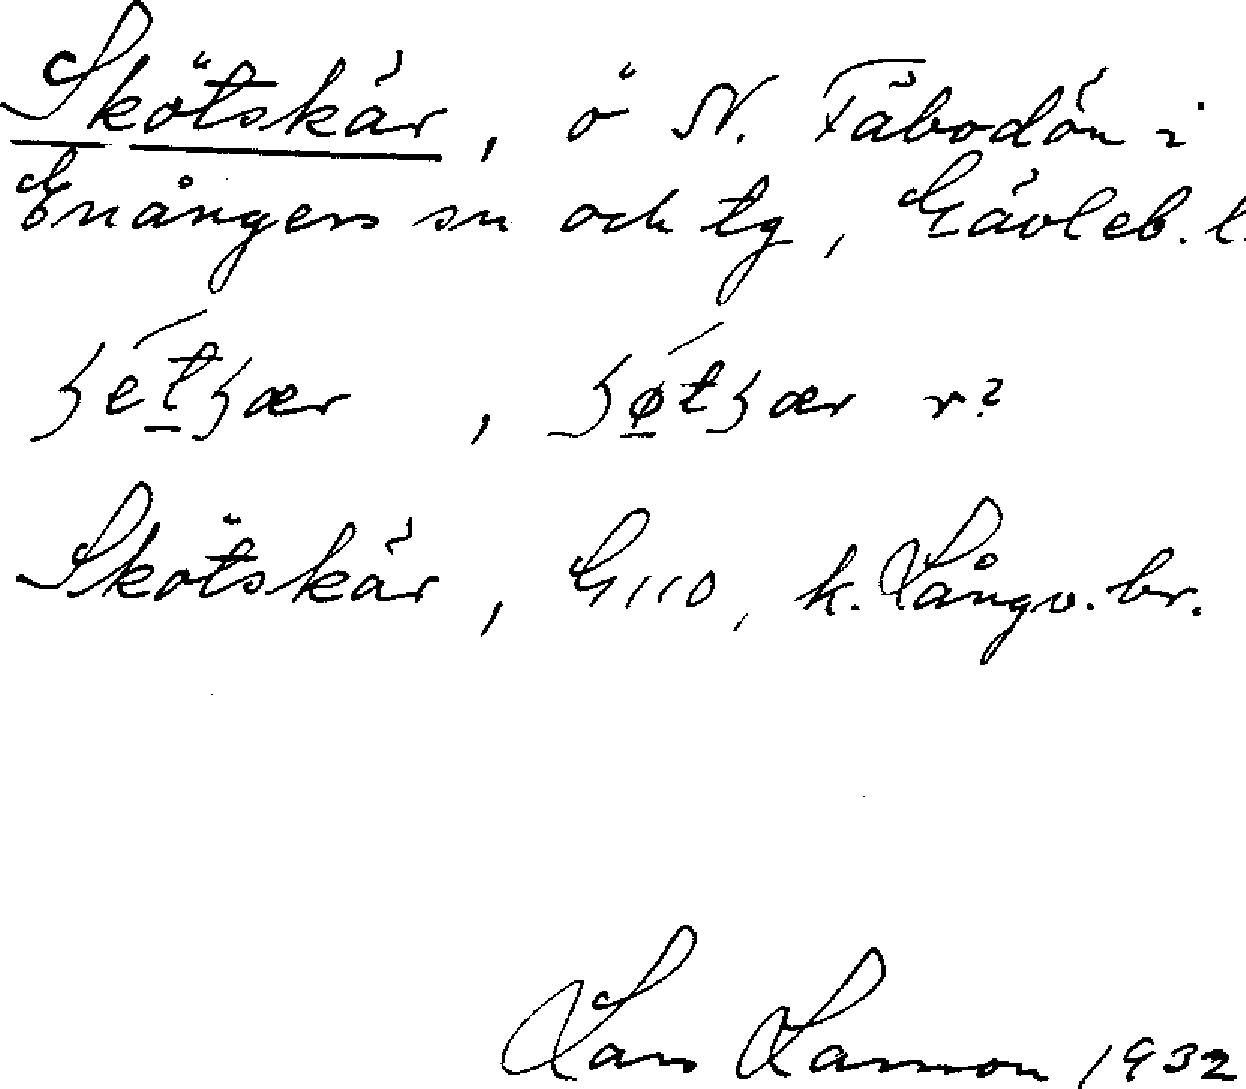 Skötskär, ö N. Fäbodön i
Enångers sn och tg, Gävleb. l.
Skötskär, G110, k. Långv. br.
Lars Larsson 1932